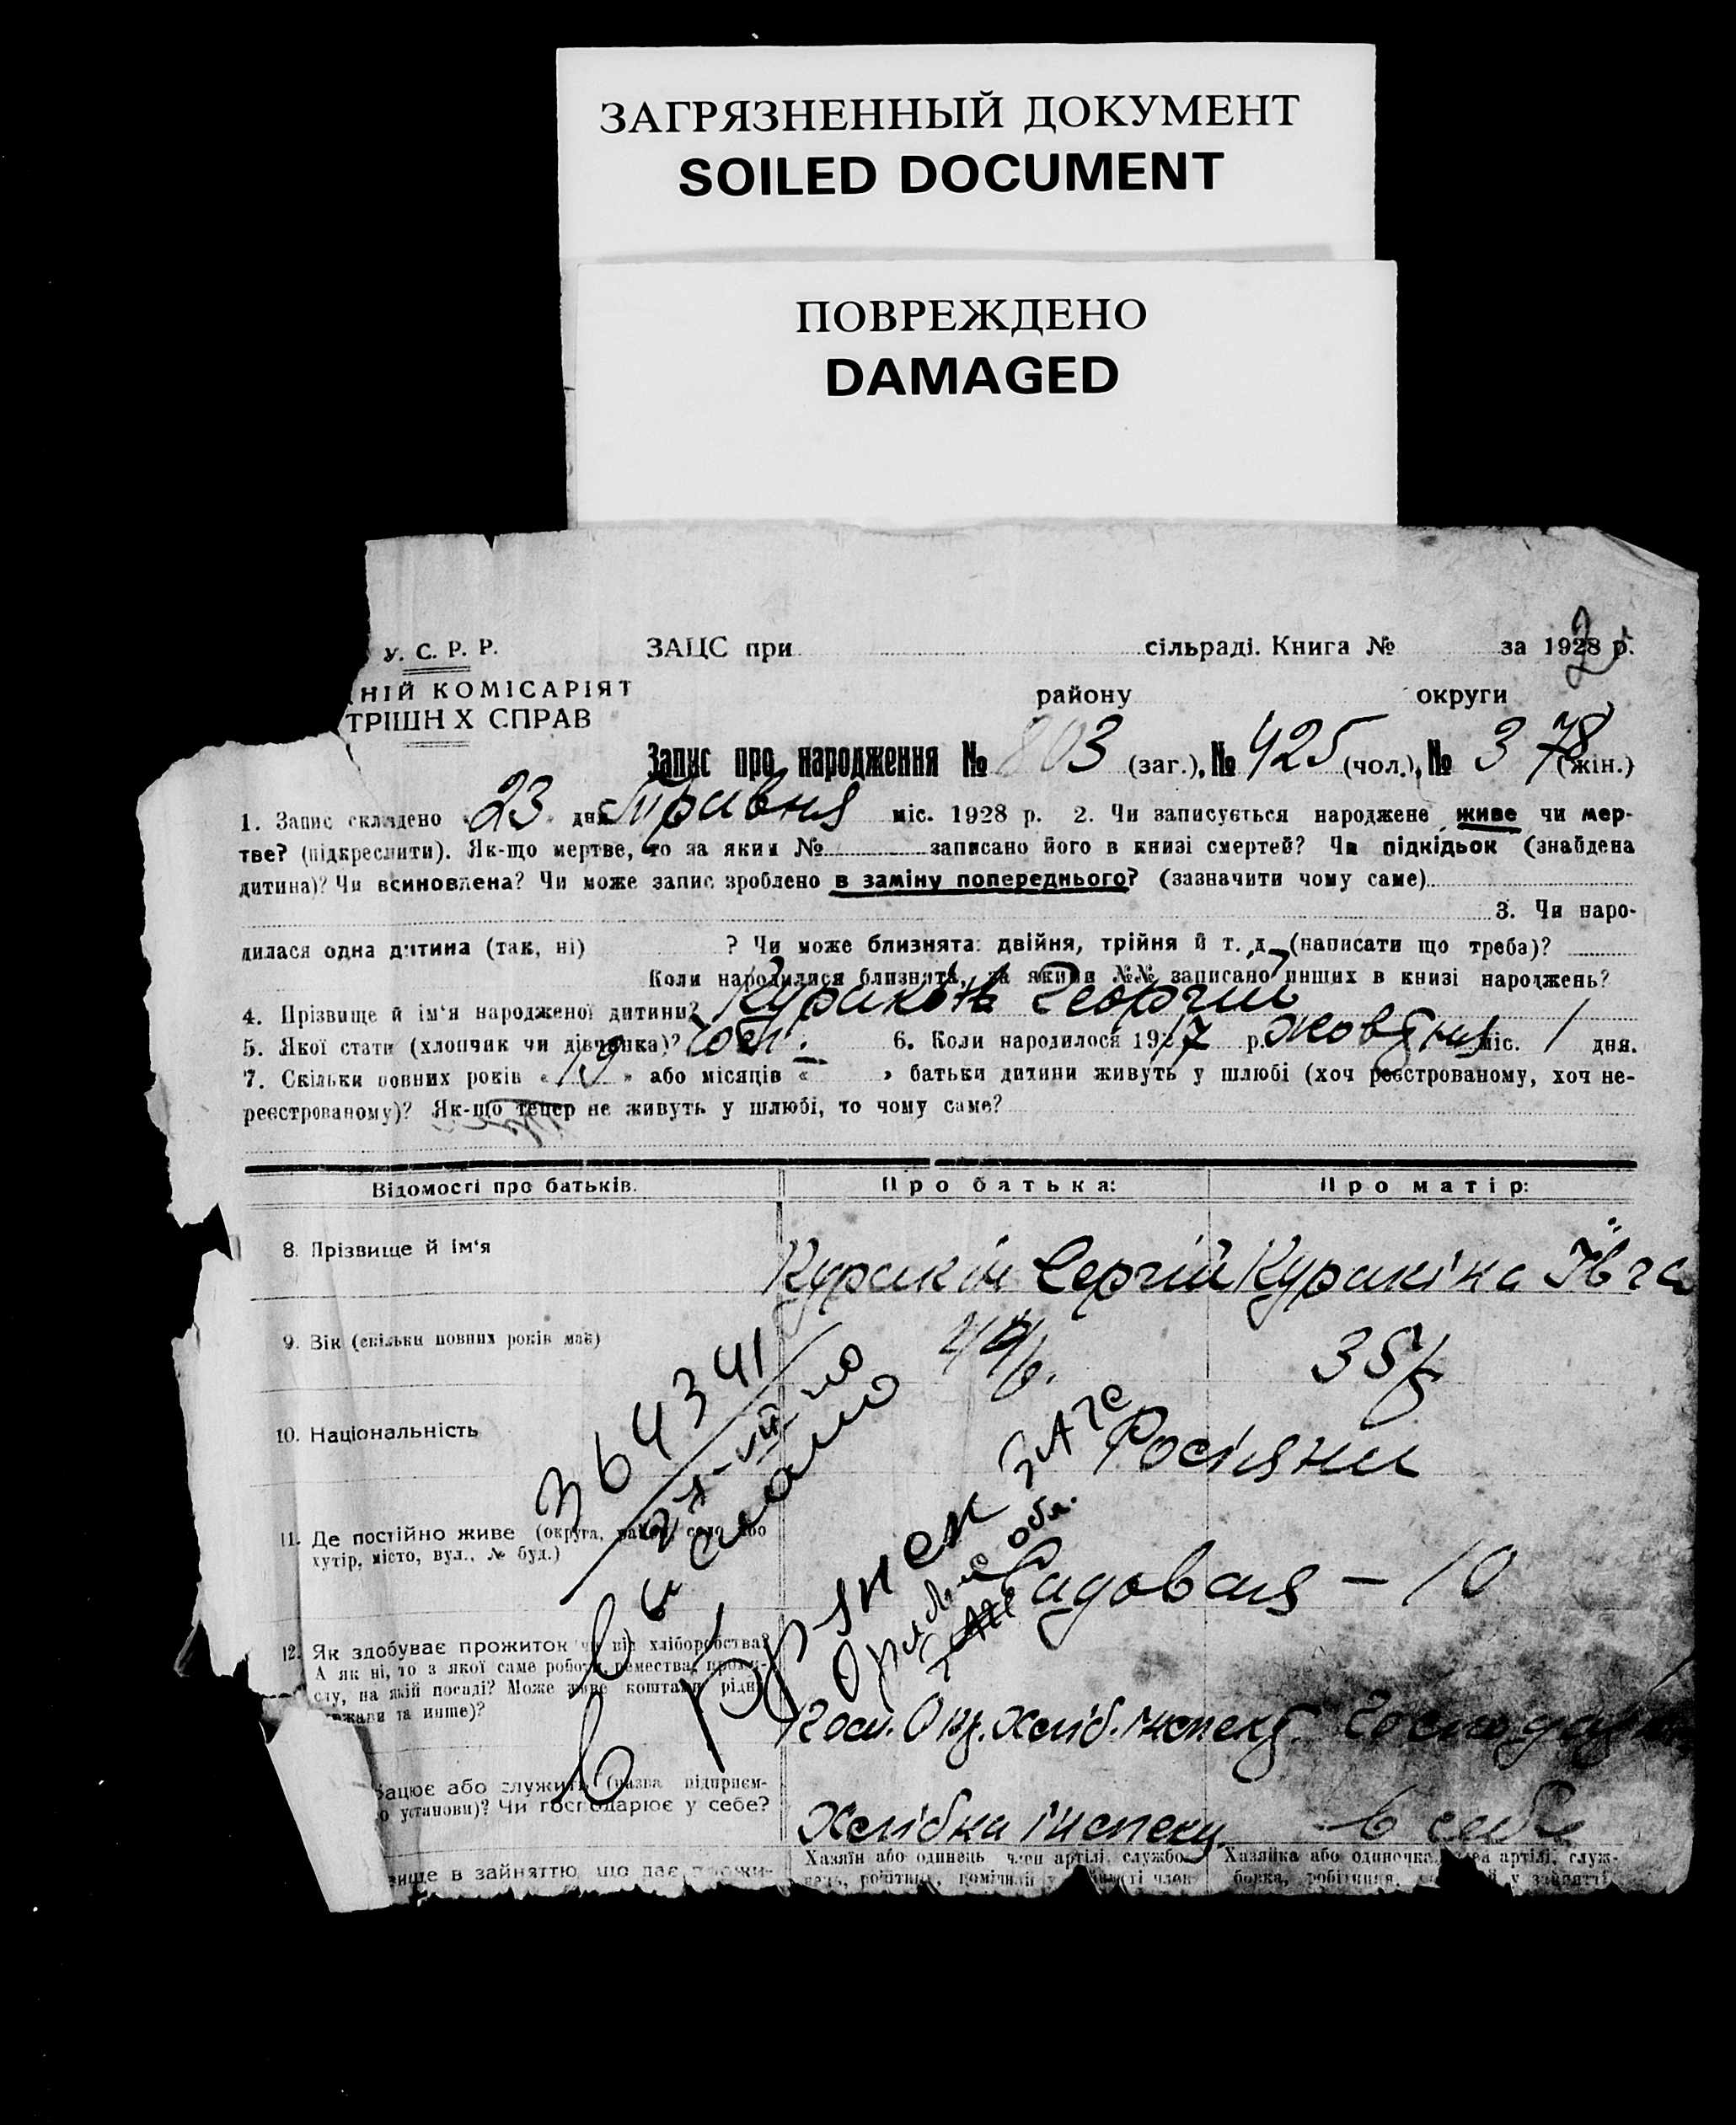 ЗАГРЯЗНЕННЫЙ ДОКУМЕНТ
SOILED DOCUMENT
ПОВРЕЖДЕНО
DAMAGED
У. С. Р. Р.
ЗАЦС при сільраді. Книга № за 1928 р.
2
НІЙ КОМІСАРІЯТ
району округи
ТРІШН Х СПРАВ
Запис про народження № 803 (заг.), № 425 (чол.), № 378 (жін.)
1. Запис складено „23“ дня Травня міс. 1928 р. 2. Чи записується народжене живе чи мер-
тве? (підкреслити). Як-що мертве, то за яким № записано його в книзі смертей? Чи підкідьок (знайдена
дитина)? Чи всиновлена? Чи може запис зроблено в заміну попереднього? (зазначити чому саме)
3. Чи наро-
дилася одна дитина (так, ні) ? Чи може близнята: двійня, трійня й т. д. (написати що треба)?
Коли народилися близнята, за якими №№ записано инших в книзі народжень?
4. Прізвище й ім'я народженої дитини? Куракін Георгій
5. Якої стати (хлопчик чи дівчинка)? чол. 6. Коли народилося 1917 р. Жовтня міс. 1 дня.
7. Скільки повних років « 19 » або місяців « » батьки дитини живуть у шлюбі (хоч реєстрованому, хоч не-
реєстрованому)? Як-що тепер не живуть у шлюбі, то чому саме?
Відомості про батьків. Про батька: Про матір:
8. Прізвище й ім'я Куракін Сергій Куракіна
9. Вік (скільки повних років має) 44/6. 35/5
10. Національність Росіяни
364341
выслано
11. Де постійно живе (округа, район, село або
хутір, місто, вул., № буд.)
Садовая – 10
в Брянск ЗАГС
12. Як здобуває прожиток чи від хліборобства?
А як ні, то з якої саме роботи, ремества, проми-
слу, на якій посаді? Може живе коштами рідні,
держави та инше)?
Окр. хліб. інспект. Господар
бацює або служить (назва підприєм-
о установи)? Чи господарює у себе?
Хлібна інспекц. в себе
вище в зайняттю, що дає прожи-
Хазяїн або одинець, член артілі, службо-
Хазяйка або одиночка, член артілі, служ-
вець, робітник, помічний у занятті член
бовка, робітниця, у занятті